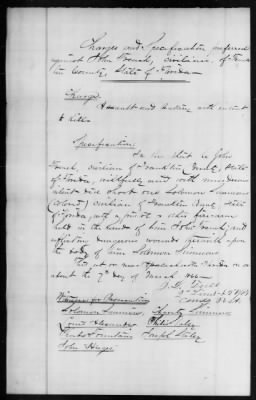 Charges and Specification preferred
against John French, civilian, of Frank
lin County, State of Florida
Charge.
Assault and Battery with intent
to kill.
Specification:
In this that he John
French, civilian of Franklin County, State
of Florida, willfully and with murderous
intent did shoot one Solomon Simmons
(Colored) civilian of Franklin County State
of Florida, with a pistol or other firearm
held in the hands of him John French, and
inflicting dangerous wounds upon
the body of him Solomon Simmons
This at or near Apalachicola Florida on or
about the 7th day of March 1866
Witnesses for Prosecution
Solomon Simmons, Simmons
Alexander
Fountain Joseph
John